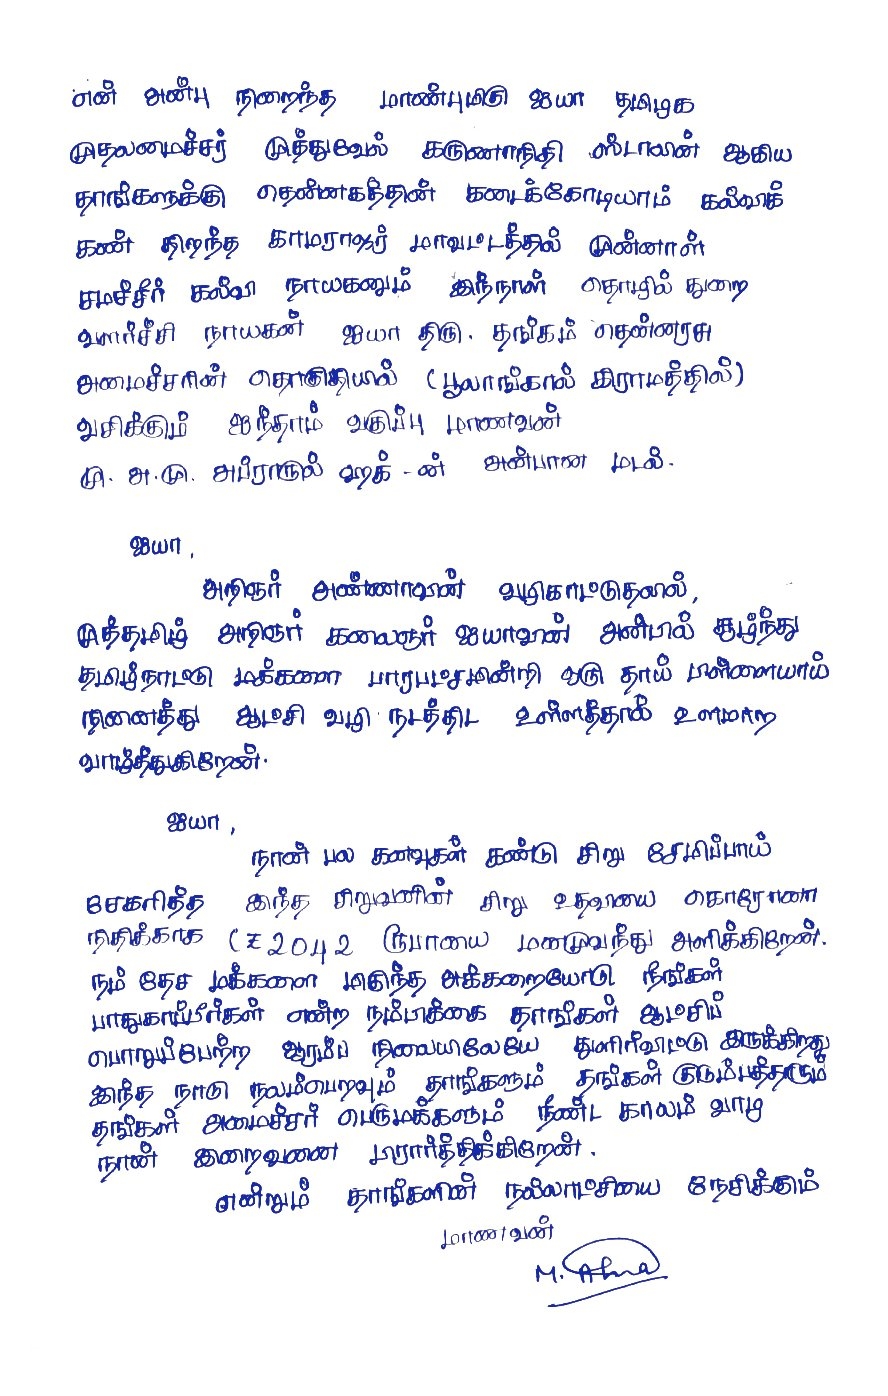 என் அன்பு நிறைந்த மாண்புமிகு ஐயா தமிழக
முதலமைச்சர் முத்துவேல் கருணாநிதி ஸ்டாலின் ஆகிய
தாங்களுக்கு தென்னகத்தின் கடைக்கோடியாம் கல்விக்
கண் திறந்த காமராஜர் மாவட்டத்தில் முன்னாள்
சமச்சீர் கல்வி நாயகனும் இந்நாள் தொழில் துறை
வளர்ச்சி நாயகன் ஐயா திரு. தங்கம் தென்னரசு
அமைச்சரின் தொகுதியில் (பூலாங்கால் கிராமத்தில்)
வசிக்கும் ஐந்தாம் வகுப்பு மாணவன்
மு. அ. மு. அபீராருல் ஹக் -ன் அன்பான மடல்.
ஐயா,
அறிஞர் அண்ணாவின் வழிகாட்டுதலில்,
முத்தமிழ் அறிஞர் கலைஞர் ஐயாவின் அன்பில் சூழ்ந்து
தமிழ்நாட்டு மக்களை பாரபட்சமின்றி ஒரு தாய் பிள்ளையாய்
நினைத்து ஆட்சி வழி நடத்திட உள்ளத்தால் உளமாற
வாழ்த்துகிறேன்.
ஐயா,
நான் பல கனவுகள் கண்டு சிறு சேமிப்பாய்
சேகரித்த இந்த சிறுவனின் சிறு உதவியை கொரோனா
நிதிக்காக (₹2042 ரூபாயை மனமுவந்து அளிக்கிறேன்.
நம் தேச மக்களை மிகுந்த அக்கறையோடு நீங்கள்
பாதுகாப்பீர்கள் என்ற நம்பிக்கை தாங்கள் ஆட்சிப்
பொறுப்பேற்ற ஆரம்ப நிலையிலேயே துளிர்விட்டு இருக்கிறது
இந்த நாடு நலம்பெறவும் தாங்களும் தங்கள் குடும்பத்தாரும்
தங்கள் அமைச்சர் பெருமக்களும் நீண்ட காலம் வாழ
நான் இறைவனை பிரார்த்திக்கிறேன்.
என்றும் தாங்களின் நல்லாட்சியை நேசிக்கும்
மாணவன்
M.